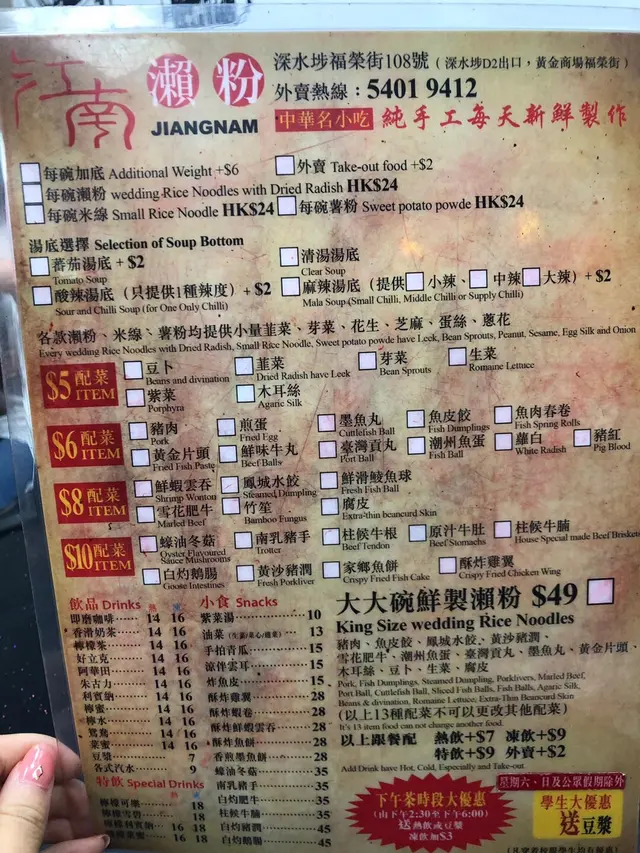 江南
瀨粉
JIANGNAM
深水埗福榮街108號（深水埗D2出口，黃金商場福榮街）
外賣熱線：5401 9412
中華名小吃 純手工每天新鮮製作
每碗加底 Additional Weight +$6
外賣 Take-out food +$2
每碗瀨粉 wedding Rice Noodles with Dried Radish HK$24
每碗米線 Small Rice Noodle HK$24
每碗薯粉 Sweet potato powde HK$24
湯底選擇 Selection of Soup Bottom
蕃茄湯底 + $2
Tomato Soup
清湯湯底
Clear Soup
酸辣湯底（只提供1種辣度）+ $2
Sour and Chilli Soup (for One Only Chilli)
麻辣湯底（提供 小辣、 中辣 大辣）+ $2
Mala Soup (Small Chilli, Middle Chilli or Supply Chilli)
各款瀨粉、米線、薯粉均提供小量韮菜、芽菜、花生、芝麻、蛋絲、蔥花
Every wedding Rice Noodles with Dried Radish, Small Rice Noodle, Sweet potato powde have Leek, Bean Sprouts, Peanut, Sesame, Egg Silk and Onion
$5 配菜 ITEM
豆卜
Beans and divination
韮菜
Dried Radish have Leek
芽菜
Bean Sprouts
生菜
Romaine Lettuce
紫菜
Porphyra
木耳絲
Agaric Silk
$6 配菜 ITEM
豬肉
Pork
煎蛋
Fried Egg
墨魚丸
Cuttlefish Ball
魚皮餃
Fish Dumplings
魚肉春卷
Fish Spring Rolls
黃金片頭
Fried Fish Paste
鮮味牛丸
Beef Balls
臺灣貢丸
Port Ball
潮州魚蛋
Fish Ball
蘿白
White Radish
豬紅
Pig Blood
$8 配菜 ITEM
鮮蝦雲吞
Shrimp Wonton
鳳城水餃
Steamed Dumpling
鮮滑鯪魚球
Fresh Fish Ball
雪花肥牛
Marled Beef
竹笙
Bamboo Fungus
腐皮
Extra-thin beancurd Skin
$10 配菜 ITEM
蠔油冬菇
Oyster Flavoured Sauce Mushrooms
南乳豬手
Trotter
柱候牛根
Beef Tendon
原汁牛肚
Beef Stomachs
柱候牛腩
House Special made Beef Briskets
白灼鵝腸
Goose Intestines
黃沙豬潤
Fresh Porkliver
家鄉魚餅
Crispy Fried Fish Cake
酥炸雞翼
Crispy Fried Chicken Wing
飲品 Drinks 熱 凍
即磨咖啡 14 16
香滑奶茶 14 16
檸檬茶 14 16
好立克 14 16
阿華田 14 16
朱古力 14 16
利賓納 14 16
檸蜜 14 16
檸水 14 16
鴛鴦 14 16
菜蜜 14 16
豆漿 7
各式汽水 9
特飲 Special Drinks
檸檬可樂 18
檸檬雪碧 18
檸檬利賓納 16 18
16 18
小食 Snacks
紫菜湯 10
油菜（生菜/菜心/通菜） 13
手拍青瓜 15
涼伴雲耳 15
炸魚皮 15
酥炸雞翼 28
酥炸蝦卷 28
酥炸鮮蝦雲吞 28
酥炸魚餅 28
香煎墨魚餅 28
蠔油冬菇 35
南乳豬手 35
白灼肥牛 35
柱候牛腩 35
白灼豬潤 45
白灼鵝腸 45
大大碗鮮製瀨粉 $49
King Size wedding Rice Noodles
豬肉、魚皮餃、鳳城水餃、黃沙豬潤、
雪花肥牛、潮州魚蛋、臺灣貢丸、墨魚丸、黃金片頭、
木耳絲、豆卜、生菜、腐皮
Pork, Fish Dumplings, Steamed Dumpling, Porklivers, Marled Beef,
Port Ball, Cuttlefish Ball, Sliced Fish Balls, Fish Balls, Agaric Silk,
Beans & divination, Romaine Lettuce, Extra-Thin Beancurd Skin
(以上13種配菜不可以更改其他配菜)
It's 13 item food can not change another food
以上跟餐配 熱飲+$7 凍飲+$9
特飲+$9 外賣+$2
Add Drink have Hot, Cold, Especially and Take-out
下午茶時段大優惠
(由下午2:30至下午6:00)
送熱飲或豆漿
凍飲加$3
星期六、日及公眾假期除外
學生大優惠
送豆漿